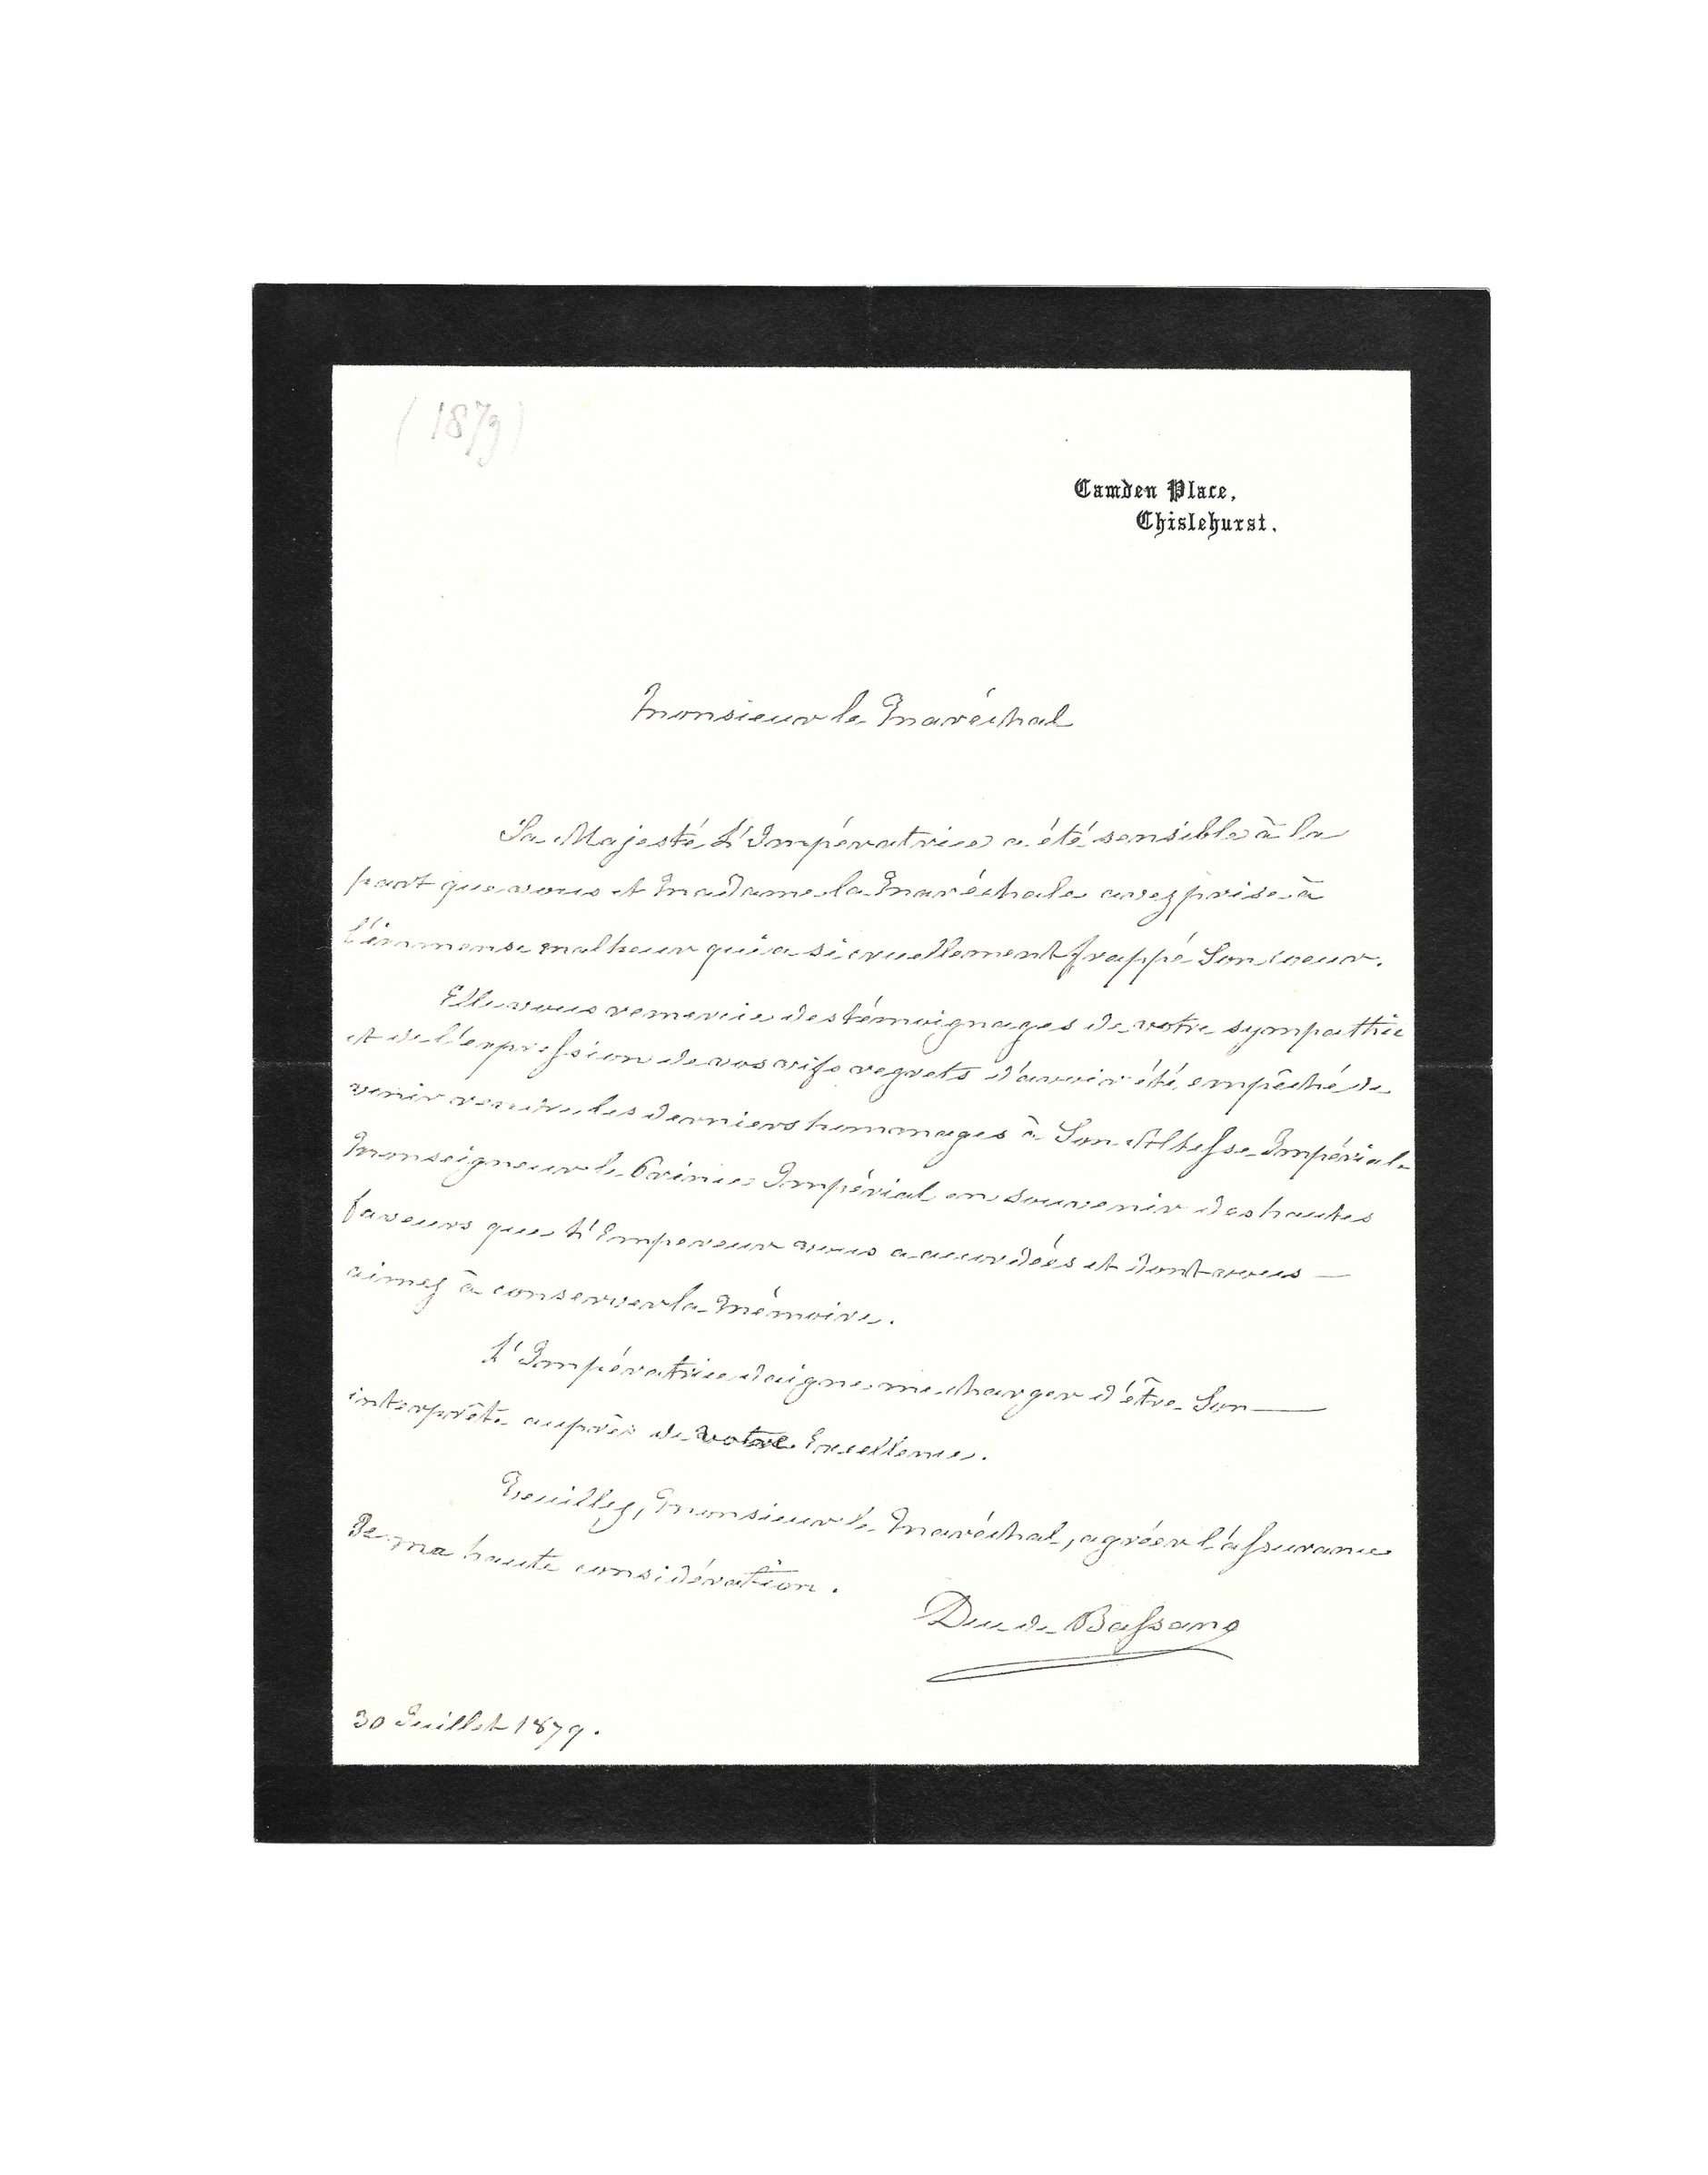 (1879)
Camden Place,
Chislehurst.
Monsieur le Maréchal
Sa Majesté L'Impératrice a été sensible à la
part que vous et Madame la Maréchale avez prise à
l'immense malheur qui a si cruellement frappé Son coeur.
Elle vous remercie des témoignages de votre sympathie
et de l'expression de vos vifs regrets d'avoir été empêché de
venir rendre les derniers hommages à Son Altesse Impériale
Monseigneur le Prince Impérial en souvenir des hautes
faveurs que L'Empereur vous a accordées et dont vous —
aimez à conserver la Mémoire.
L'Impératrice daigne me charger d'être Son —
interprête auprès de votre Excellence.
Veuillez, Monsieur le Maréchal, agréer l'assurance
de ma haute considération.
Duc de Bassano
30 Juillet 1879.